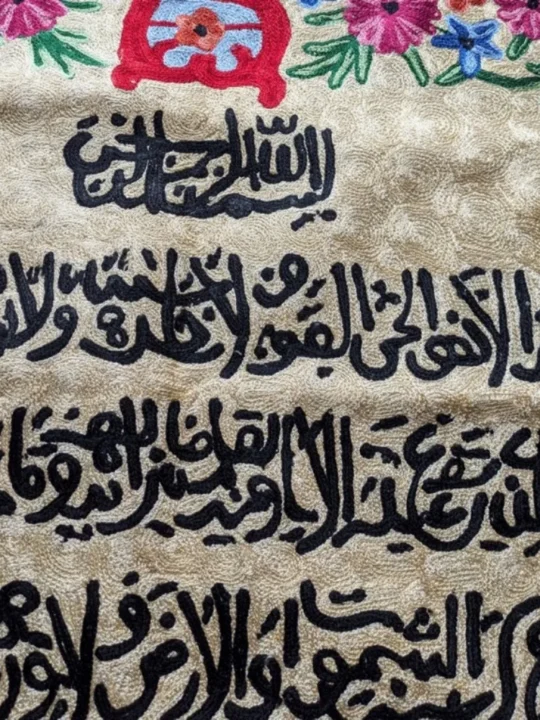 بسم الله الرحمن الرحيم
الا هو الحي القيوم لا تأخذه سنة ولا
يشفع عنده الا باذنه يعلم ما بين ايديهم وما
السموت والارض ولا